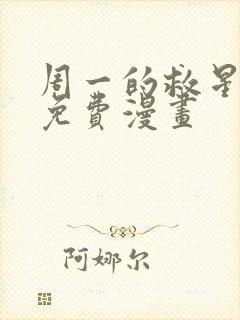 周一的救星
免费漫畫
阿娜尔